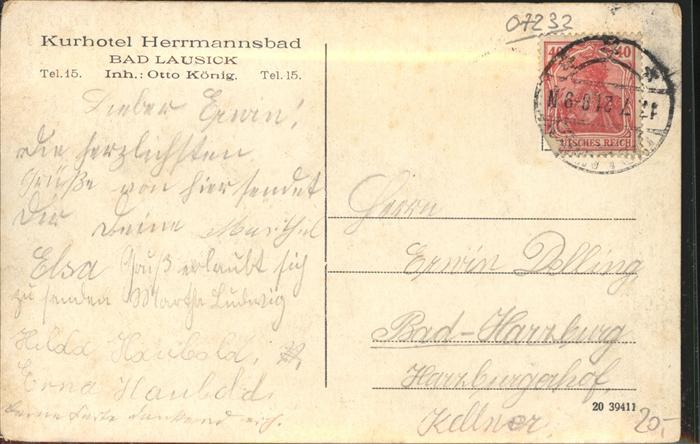 07232
Kurhotel Herrmannsbad
BAD LAUSICK
Tel. 15. Inh.: Otto König. Tel. 15.
40 40
DEUTSCHES REICH
7 21 8-9 N
Lieber Erwin!
die herzlichsten
Grüße von hier sendet
Dir Deine
Elsa Gruß erlaubt sich
zu senden Martha Ludwig
Hilda Haubold
Erna Haubold
Karte dankend
Herrn
Erwin Dölling
Bad-Harzburg
Harzburgerhof
Kellner
20 39411
20,-